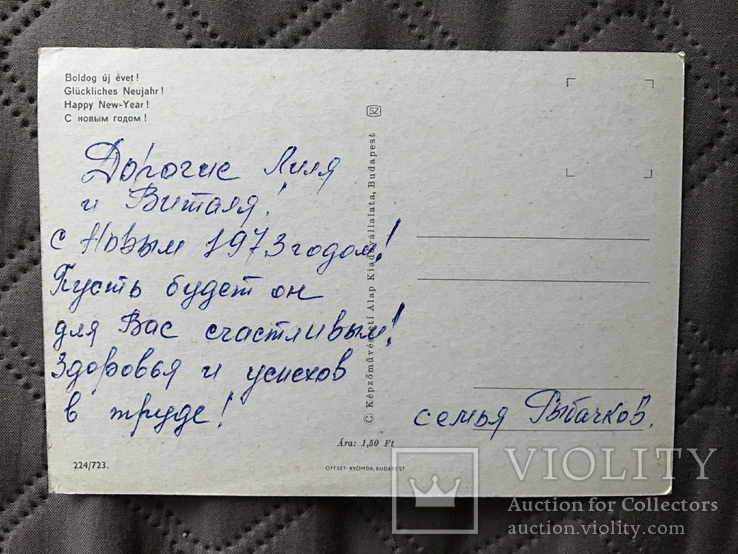 Boldog új évet!
Glückliches Neujahr!
Happy New-Year!
С новым годом!
Дорогие Лиля
и Виталя!
с Новым 1973 годом!
Пусть будет он
для Вас счастливым!
Здоровья и успехов
в труде!
семья Рыбачков.
SZ
© Képzőművészeti Alap Kiadóvállalata, Budapest
Ára: 1,50 Ft
224/723.
OFFSET-NYOMDA, BUDAPEST
VIOLITY
Auction for Collectors
auction.violity.com